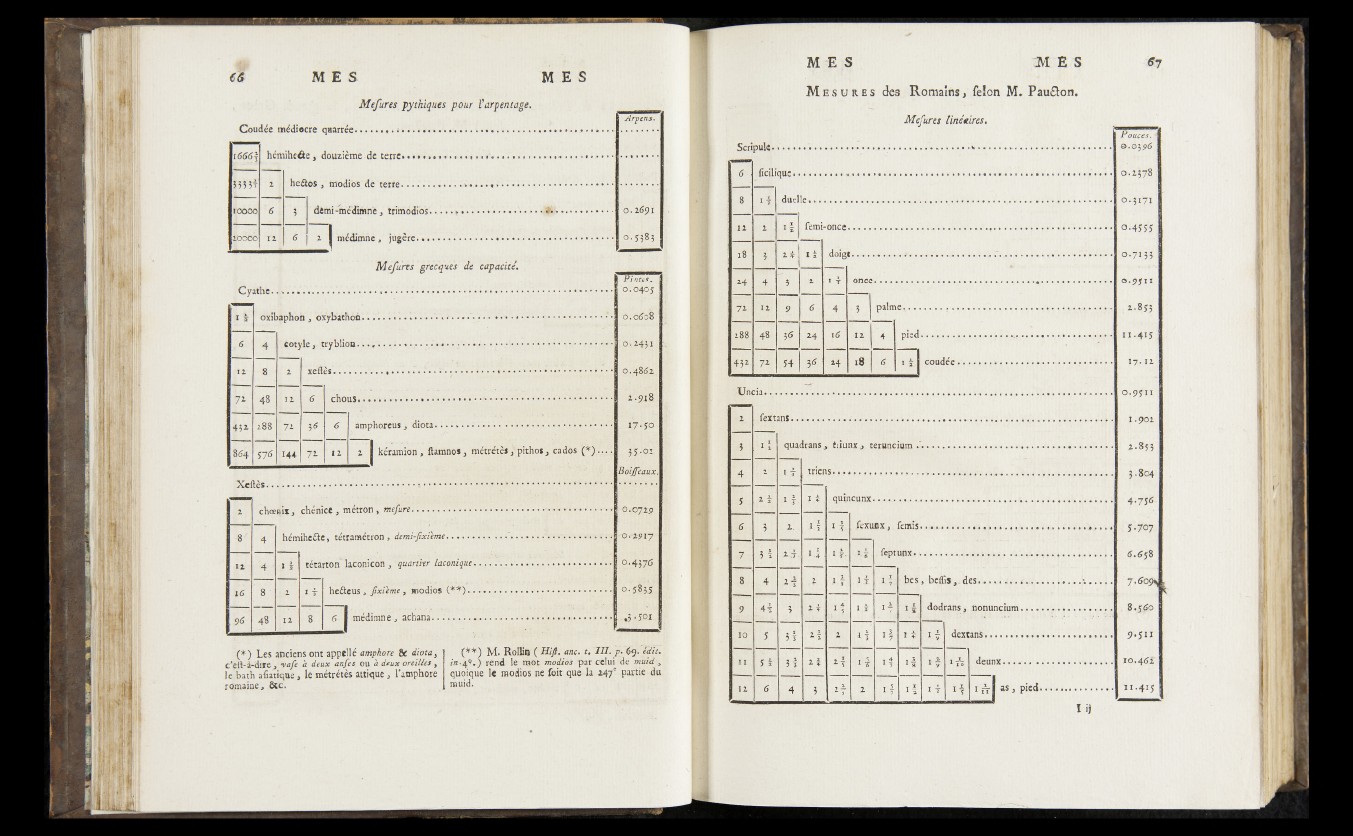 66 MES MES
Mesures pythiques pour l'arpentage.
Arpens.
Coudée médiocre quarrée
1666⅔ hémihecte, douzième de terre
3333⅓ 2 hectos, modios de terre
10000 6 3 demi-médimne, trimodios 0.2691
20000 12 6 2 médimne, jugère 0.5383
Mesures grecques de capacité.
Pintes.
Cyathe 0.0405
1 ½ oxibaphon, oxybathon 0.0608
6 4 cotyle, tryblion 0.2431
12 8 2 xestès 0.4862
72 48 12 6 chous 2.918
432 288 72 36 6 amphoreus, diota 17.50
864 576 144 72 12 2 kéramion, stamnos, métrétès, pithos, cados (*) 35.02
Boisseaux.
Xestès
2 chœnix, chénice, métron, mesure 0.0729
8 4 hémihecte, tétramétron, demi-sixième 0.2917
12 4 1 ½ tétarton laconicon, quartier laconique 0.4376
16 8 2 1 ⅓ hecteus, sixième, modios (**) 0.5835
96 48 12 8 6 médimne, achana 3.501
(*) Les anciens ont appellé amphore & diota,
c'est-à-dire, vase à deux anses ou à deux oreilles,
le bath asiatique, le métrétès attique, l'amphore
romaine, &c.
(**) M. Rollin (Hist. anc. t. III. p. 69. édit.
in-4°.) rend le mot modios par celui de muid,
quoique le modios ne soit que la 247e partie du
muid.
MES MES 67
MESURES des Romains, selon M. Paucton.
Mesures linéaires.
Pouces.
Scripule 0.0396
6 sicilique 0.2378
8 1 ⅓ duelle 0.3171
12 2 1 ½ semi-once 0.4555
18 3 2 ¼ 1 ½ doigt 0.7133
24 4 3 2 1 ⅓ once 0.9511
72 12 9 6 4 3 palme 2.853
288 48 36 24 16 12 4 pied 11.415
432 72 54 36 24 18 6 1 ½ coudée 17.12
Uncia 0.9511
2 sextans 1.902
3 1 ½ quadrans, triunx, teruncium 2.853
4 2 1 ⅓ triens 3.804
5 2 ½ 1 ⅔ 1 ¼ quincunx 4.756
6 3 2 1 ½ 1 ⅕ sexunx, semis 5.707
7 3 ½ 2 ⅓ 1 ¾ 1 ⅖ 1 ⅙ septunx 6.658
8 4 2 ⅔ 2 1 ⅗ 1 ⅓ 1 1/7 bes, bessis, des 7.609
9 4 ½ 3 2 ¼ 1 ⅘ 1 ½ 1 2/7 1 ⅛ dodrans, nonuncium 8.560
10 5 3 ⅓ 2 ½ 2 1 ⅔ 1 3/7 1 ¼ 1 1/9 dextans 9.511
11 5 ½ 3 ⅔ 2 ¾ 2 ⅕ 1 ⅚ 1 4/7 1 ⅜ 1 2/9 1 1/10 deunx 10.462
12 6 4 3 2 ⅖ 2 1 5/7 1 ½ 1 ⅓ 1 ⅕ 1 1/11 as, pied 11.415
I ij